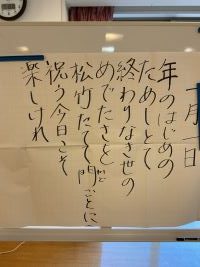 一月一日
年のはじめの
ためしとて
終わりなき世の
めでたさを
松竹たてて門ごとに
かど
祝う今日こそ
楽しけれ